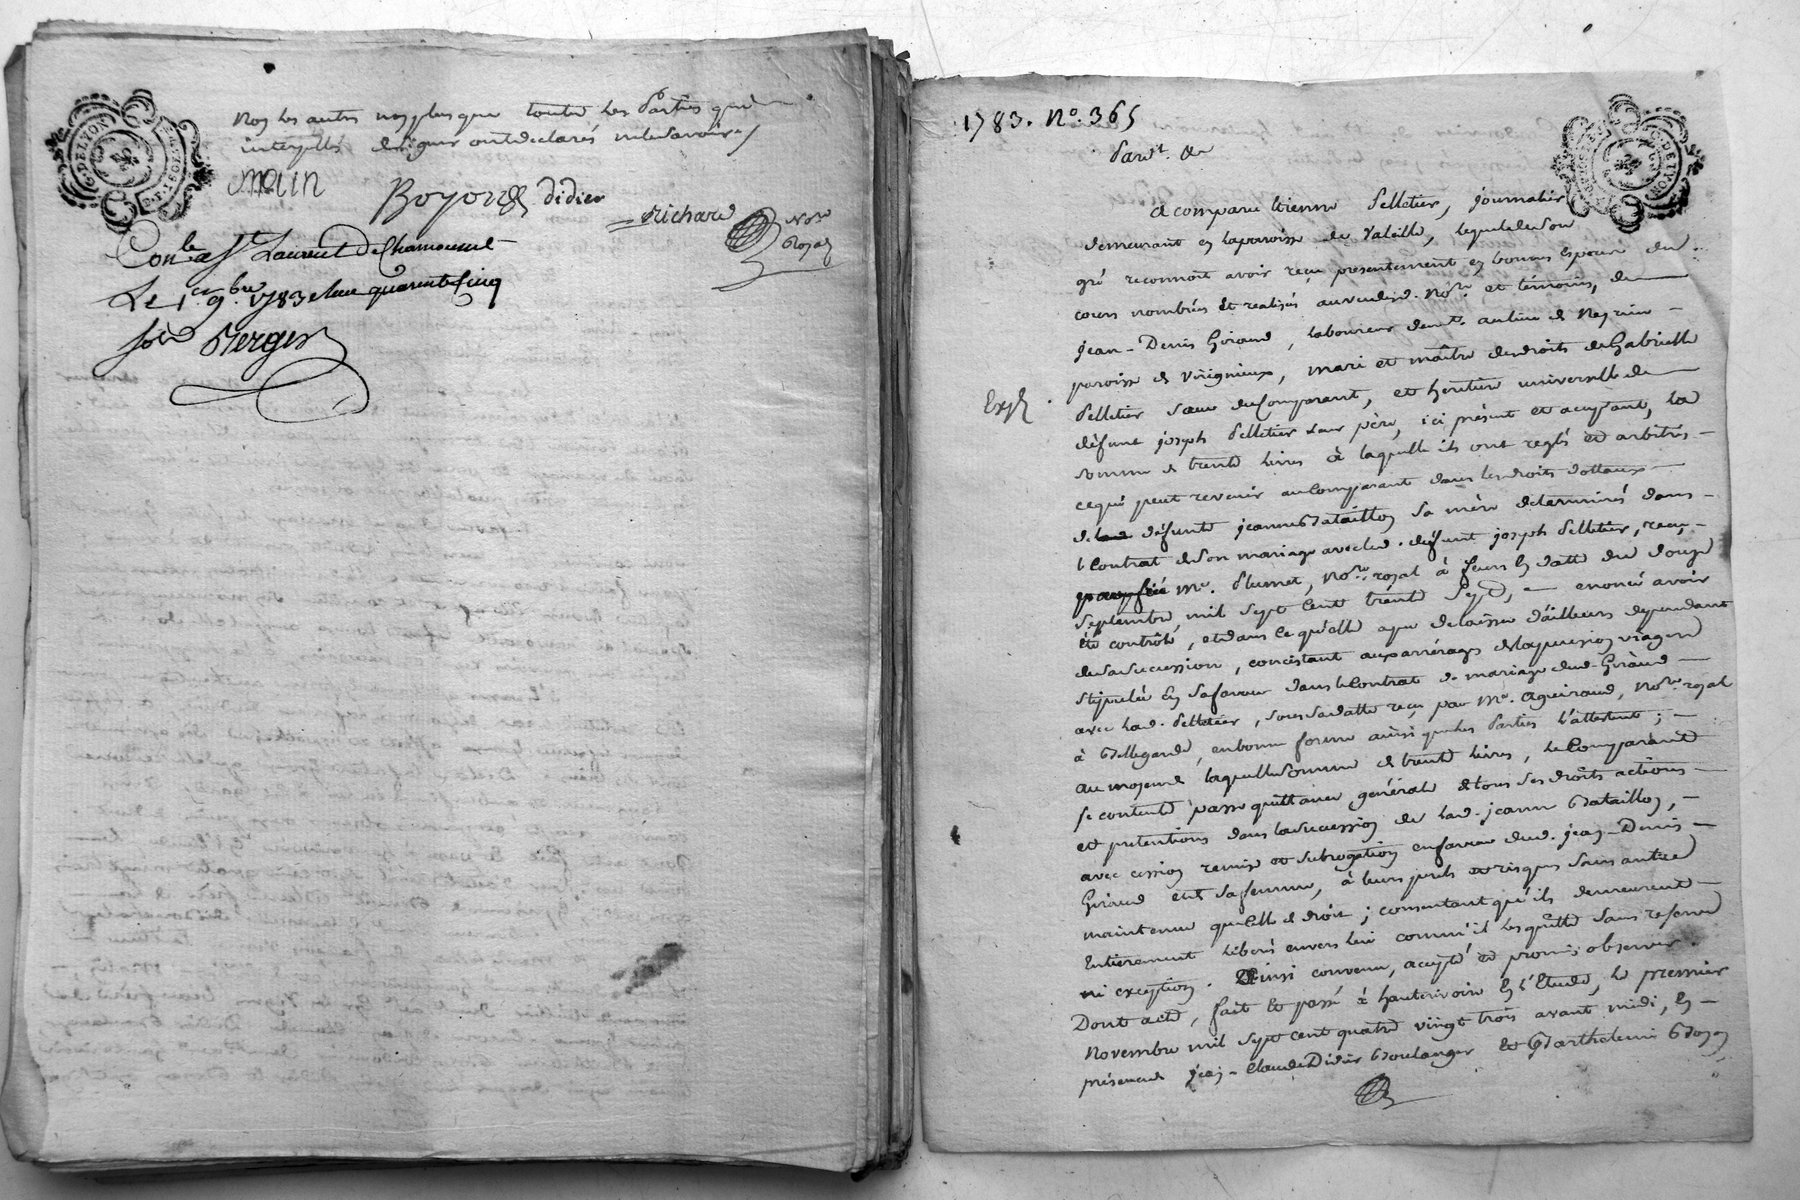 G. DE LYON
Non les autres non plus que toutes les Parties qui
interpellés de signer ont declarés ne le savoir
MAIN
Boyon Didier
Richard Nore
Royal
Con.lé a St Laurent De Chamousset
Le 1er 9bre 1783 quarante cinq
sols Berger
1783. No. 365
Pardt. de
G. DE LYON
A comparu Etienne Pelletier, journalier
demeurant en la paroisse de Valeille, lequel de son
gré reconnoit avoir reçu presentement en bonnes especes du
cours nombrés et realisés au vu dud. Nore. et temoins, de
Jean-Denis Giraud, laboureur demt. au lieu de
paroisse de Virignieux, mari et maître des droits de Gabrielle
Expé
Pelletier sœur du Comparant, et heritiere universelle de
défunt joseph Pelletier leur père, ici présent et acceptant, la
somme de trente livres à laquelle ils ont reglé et arbitrés
ce qui peut revenir au Comparant dans les droits dottaux
de défunte jeanne Bataillon sa mère determinés dans
le Contrat de son mariage avec led. défunt joseph Pelletier, reçu
Me. Plumet, Nore. royal à feurs en datte du douze
Septembre mil sept cent trente sept, enoncé avoir
été contrôlé, et dans ce qu'elle a pu delaisser d'ailleurs dependant
de sa succession, concistant aux arrérages de la pension viagere
Stipulée en sa faveur dans le Contrat de mariage dud. Giraud
avec lad. Pelletier, sous sa datte reçu par Me. Aguiraud, Nore. royal
à Bellegarde, en bonne forme ainsi que les Parties l'attestent;
au moyen de laquelle somme de trente livres, le Comparant
se contente passe quittance générale de tous ses droits actions
et pretentions dans la succession de lad. jeanne Bataillon,
avec cession remise et subrogation en faveur dud. jean-Denis
Giraud et de sa femme, à leurs perils et risques sans autre
maintenue que celle de droit; consentant qu'ils demeurent
Entierement liberés envers lui comm'il les quitte sans reserve
ni exception. Ainsi convenu, accepté et promis observer.
Dont acte, fait et passé à hauterivoire en l'Etude, le premier
Novembre mil sept cent quatre vingt trois avant midi, en
présence de jean-Claude Didier Boulanger et Barthelemi Boyon